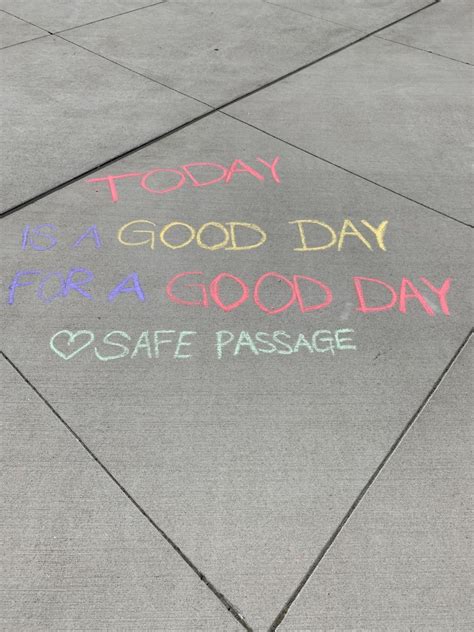 TODAY
IS A GOOD DAY
FOR A GOOD DAY
♡ SAFE PASSAGE